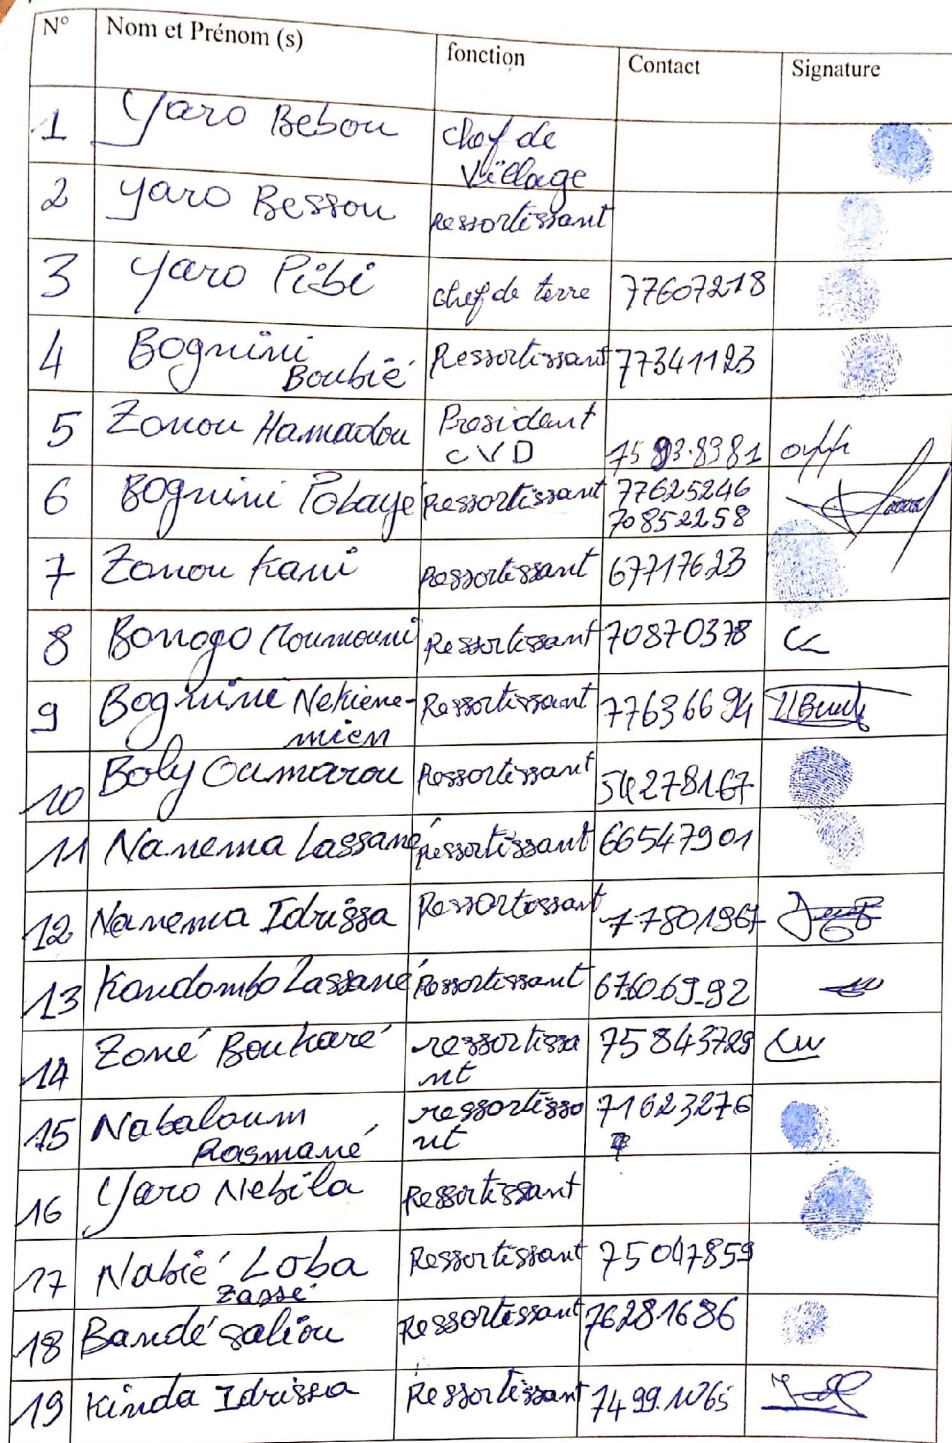 N° Nom et Prénom (s) fonction Contact Signature
1 Yaro Bebou Chef de
Village
2 Yaro Bessou Ressortissant
3 Yaro Pibi chef de terre 77607218
4 Bognini Ressortissant 77341123
Boubié
5 Zonou Hamadou President
CVD 75 93.8381
6 Bognini Pobayé Ressortissant 77625246
70852258
7 Zonou Kani Ressortissant 67717623
8 Bonogo Moumouni Ressortissant 70870378
9 Bognini Nekiene- Ressortissant 77636694
mien
10 Boly Oumarou Ressortissant 54278167
11 Nanema Lassané ressortissant 66547901
12 Nanema Idrissa Ressortossant 77801967
13 Kondombo Lassané Ressortissant 676069_92
14 Zoné Boukaré ressortissa 75843729
nt
15 Nabaloum ressortissa 71623276
Rasmané nt
16 Yaro Nebila Ressortissant
17 Nabié Loba Ressortissant 75047859
Zassé
18 Bandé saliou Ressortissant 76281686
19 Kinda Idrissa Ressortissant 7499.1065